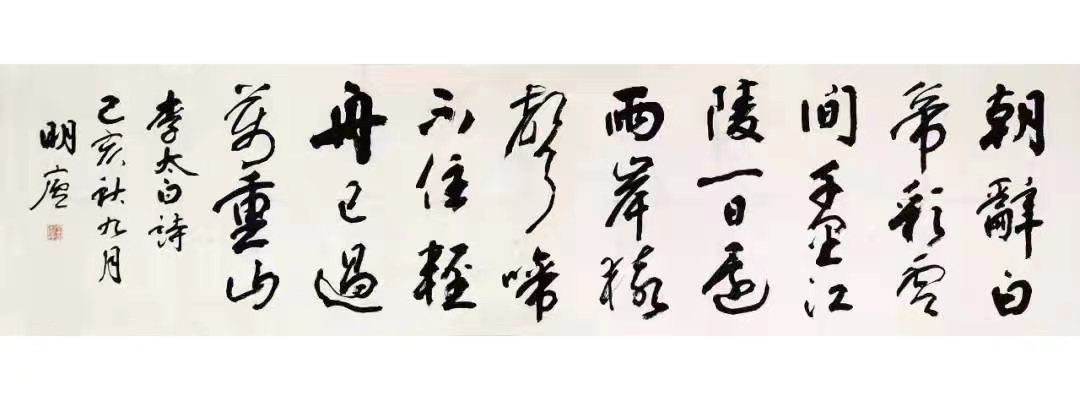 朝辭白
帝彩雲
間千里江
陵一日還
兩岸猿
聲啼
不住輕
舟已過
萬重山
李太白詩
己亥秋九月
明